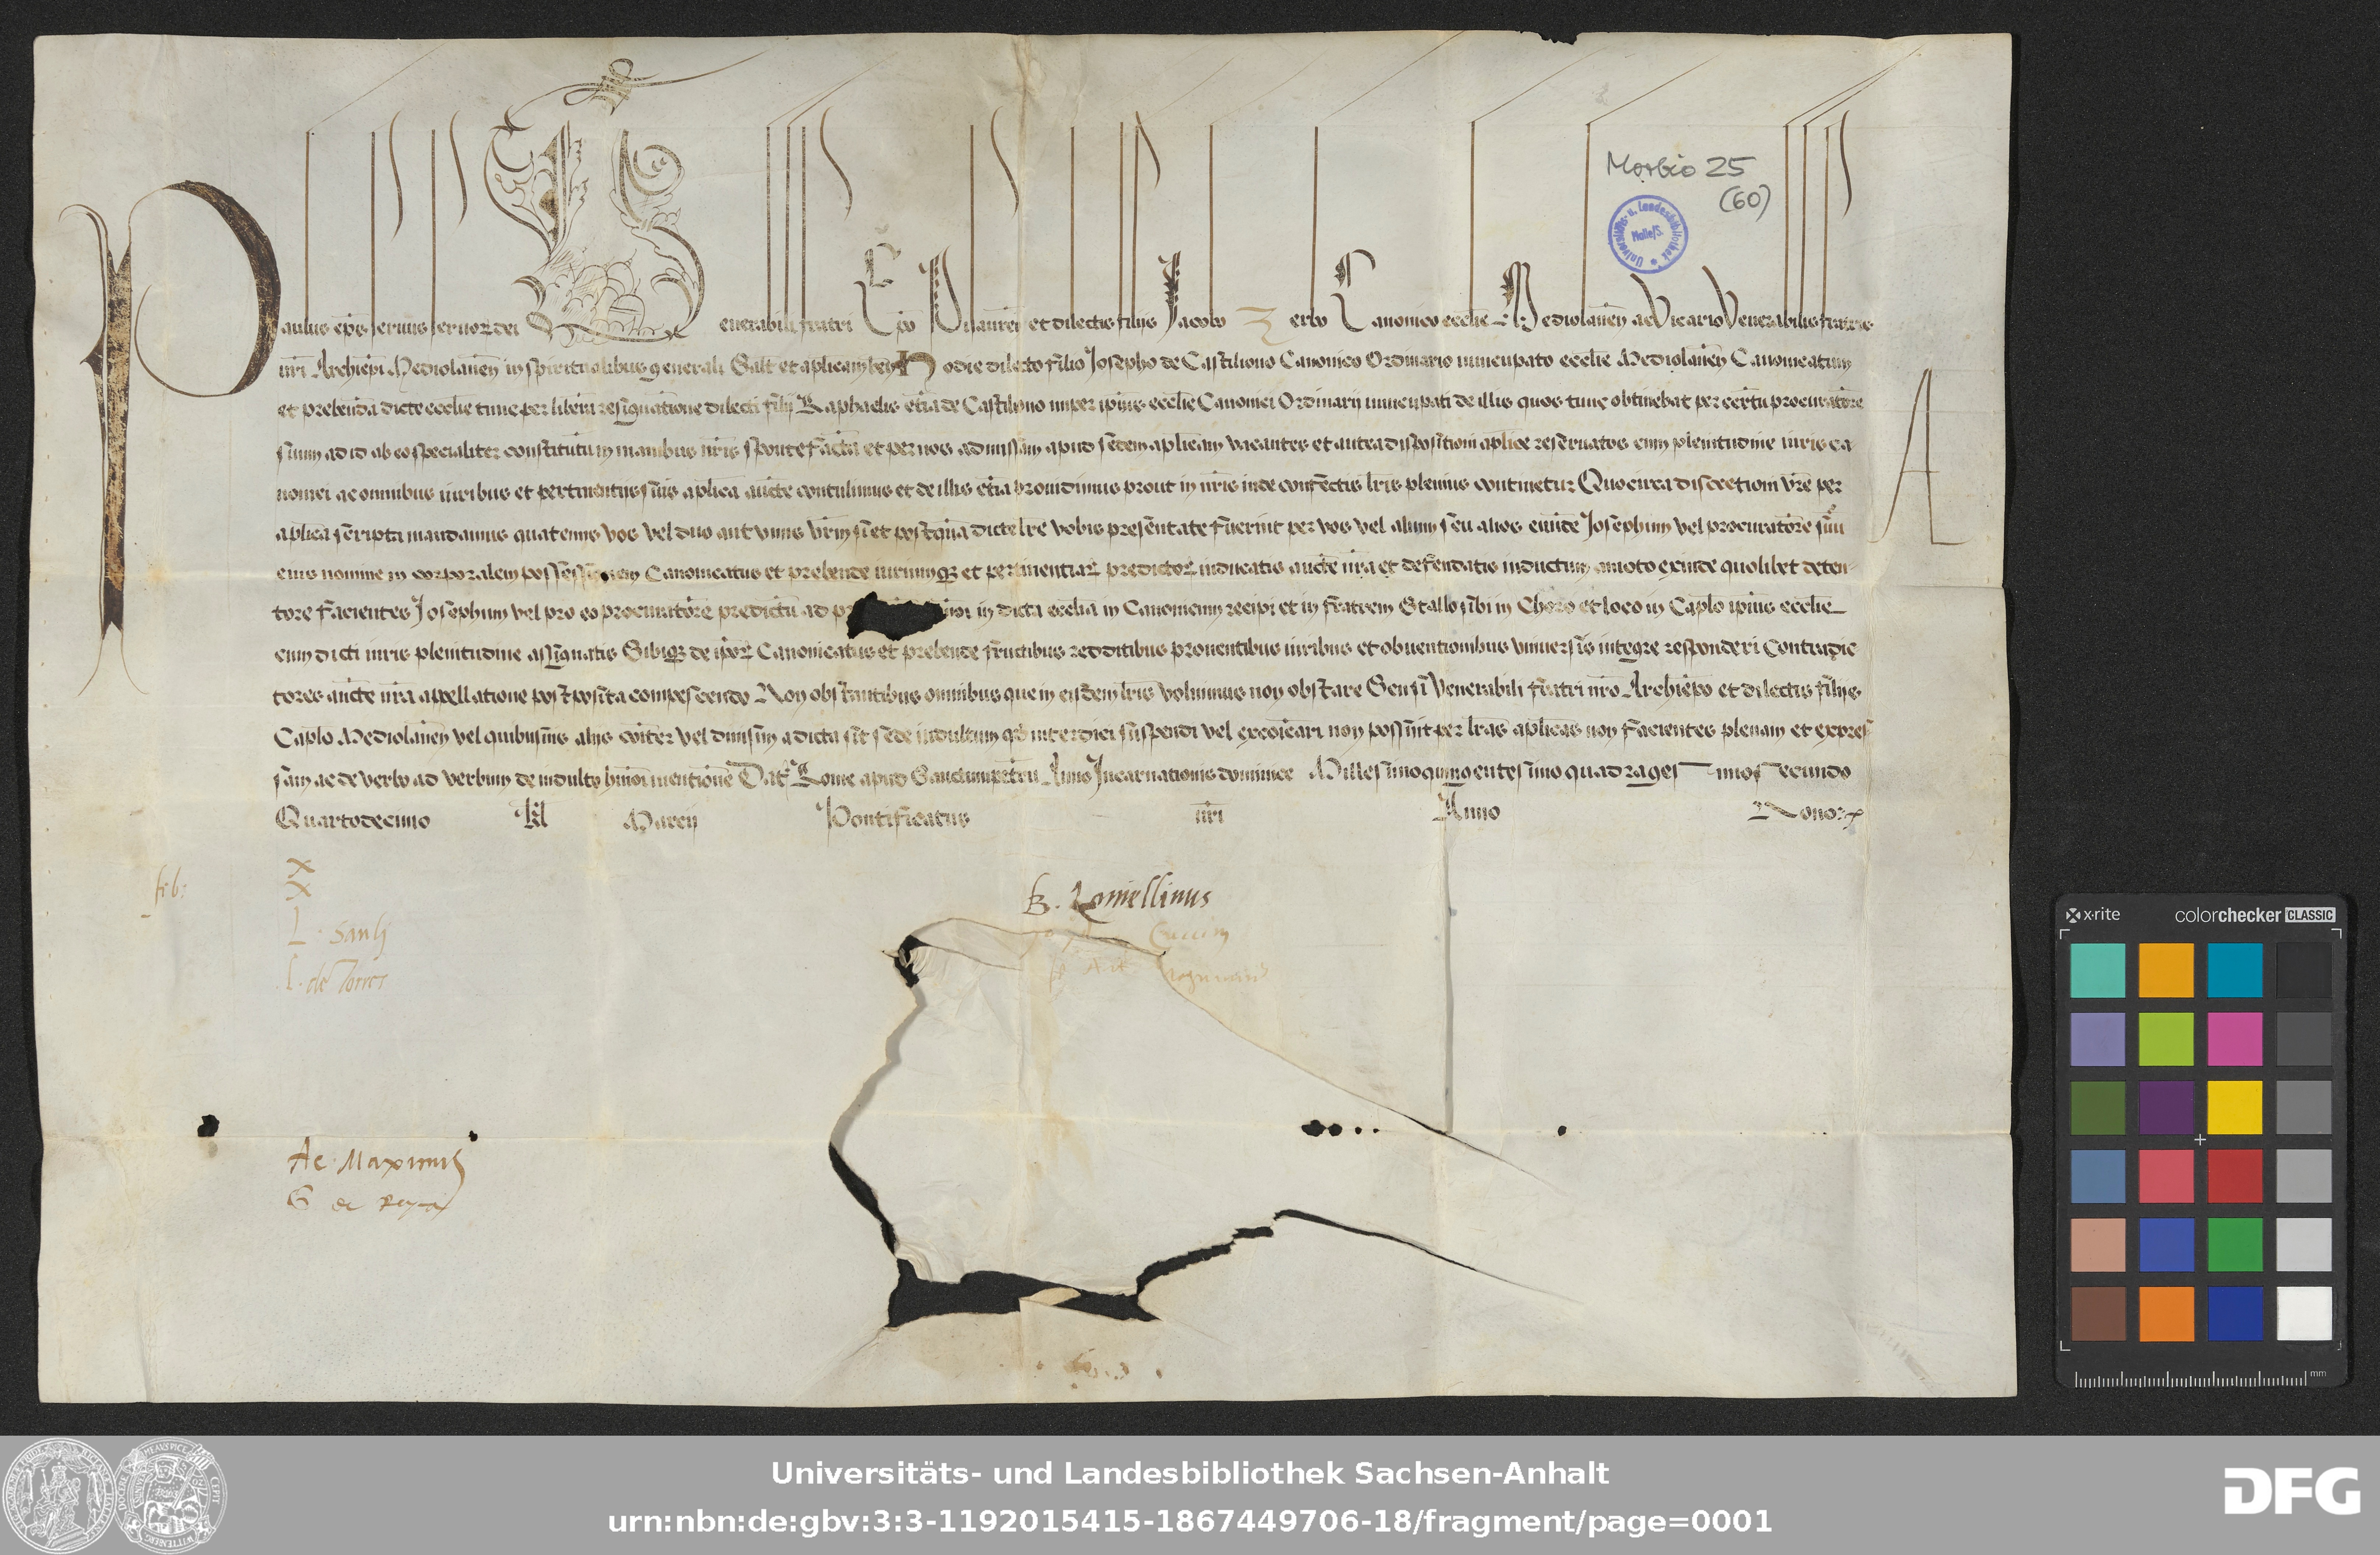 Paulus ep̄s seruus seruoꝝ dei Venerabili fratri Ep̄o Pisaurieñ et dilectis filijs Jacobo Zerbo Canonico ecclīe Mediolaneñ ac Vicario Venerabilis fratris
nr̄i Archiep̄i Mediolaneñ in spiritualibus generali Salt̄ et aplicam beñ Hodie dilecto filio Josepho de Castiliono Canonico Ordinario nuncupato ecclīe Mediolaneñ Canonicatum
et prebendā dicte ecclīe tunc per liberā resignationē dilecti filij Raphaelis etiā de Castiliono nuper ipius ecclīe Canonici Ordinarij nuncupati de illis quos tunc obtinebat per certū procuratorē
suum ad id ab eo specialiter constitutū in manibus nr̄is sponte factā et per nos admissam apud sedem aplicam vacantes et antea dispositioni aplice reseruatos cum plenitudine iuris ca
nonici ac omnibus iuribus et pertinentijs suis aplica aucte contulimus et de illis etiā prouidimus prout in nr̄is inde confectis lr̄is plenius continetur Quocirca discretioni vr̄e per
aplica scripta mandamus quatenus vos vel duo aut vnus vr̄m si et postquā dicte lr̄e vobis presentate fuerint per vos vel alium seu alios eundē Josephum vel procuratorē suū
eius nomine in corporalem possessionem Canonicatus et prebende iuriumqꝫ et pertinentiaꝝ predictoꝝ inducatis aucte nr̄a et defendatis inductum amoto exinde quolibet deten-
tore facientes Josephum vel pro eo procuratorē predictū ad pr in dicta ecclia in Canonicum recipi et in fratrem Stallo sibi in Choro et loco in Caplo ipius ecclīe
cum dicti iuris plenitudine assignatis Sibiqꝫ de ipoꝝ Canonicatus et prebende fructibus redditibus prouentibus iuribus et obuentionibus vniuersis integre responderi Contradic
tores aucte nr̄a appellatione postposita compescendo Non obstantibus omnibus que in eisdem lr̄is volumus non obstare Seu si Venerabili fratri nr̄o Archiep̄o et dilectis filijs
Caplo Mediolaneñ vel quibusuis alijs coīter vel diuisim a dicta sit sede indultum qd̄ interdici suspendi vel excoīcari non possint per lr̄as aplicas non facientes plenam et expres
sam ac de verbo ad verbum de indulto hmōi mentionē Dat̄ Rome apud Sanctumpetrū Anno Incarnationis dominice Millesimoquingentesimoquadragesimosecundo
Quartodecimo Kl̄ Marcij Pontificatus nr̄i Anno Nono
A
feb:
X
X
L. Sauly
L. de Torres
B. Lomellinus
Ae Maximus
G de Reyna
Morbio 25
(60)
Universitäts- u. Landesbibliothek
Halle/S.
x·rite colorchecker CLASSIC
mm
Universitäts- und Landesbibliothek Sachsen-Anhalt
urn:nbn:de:gbv:3:3-1192015415-1867449706-18/fragment/page=0001
DFG